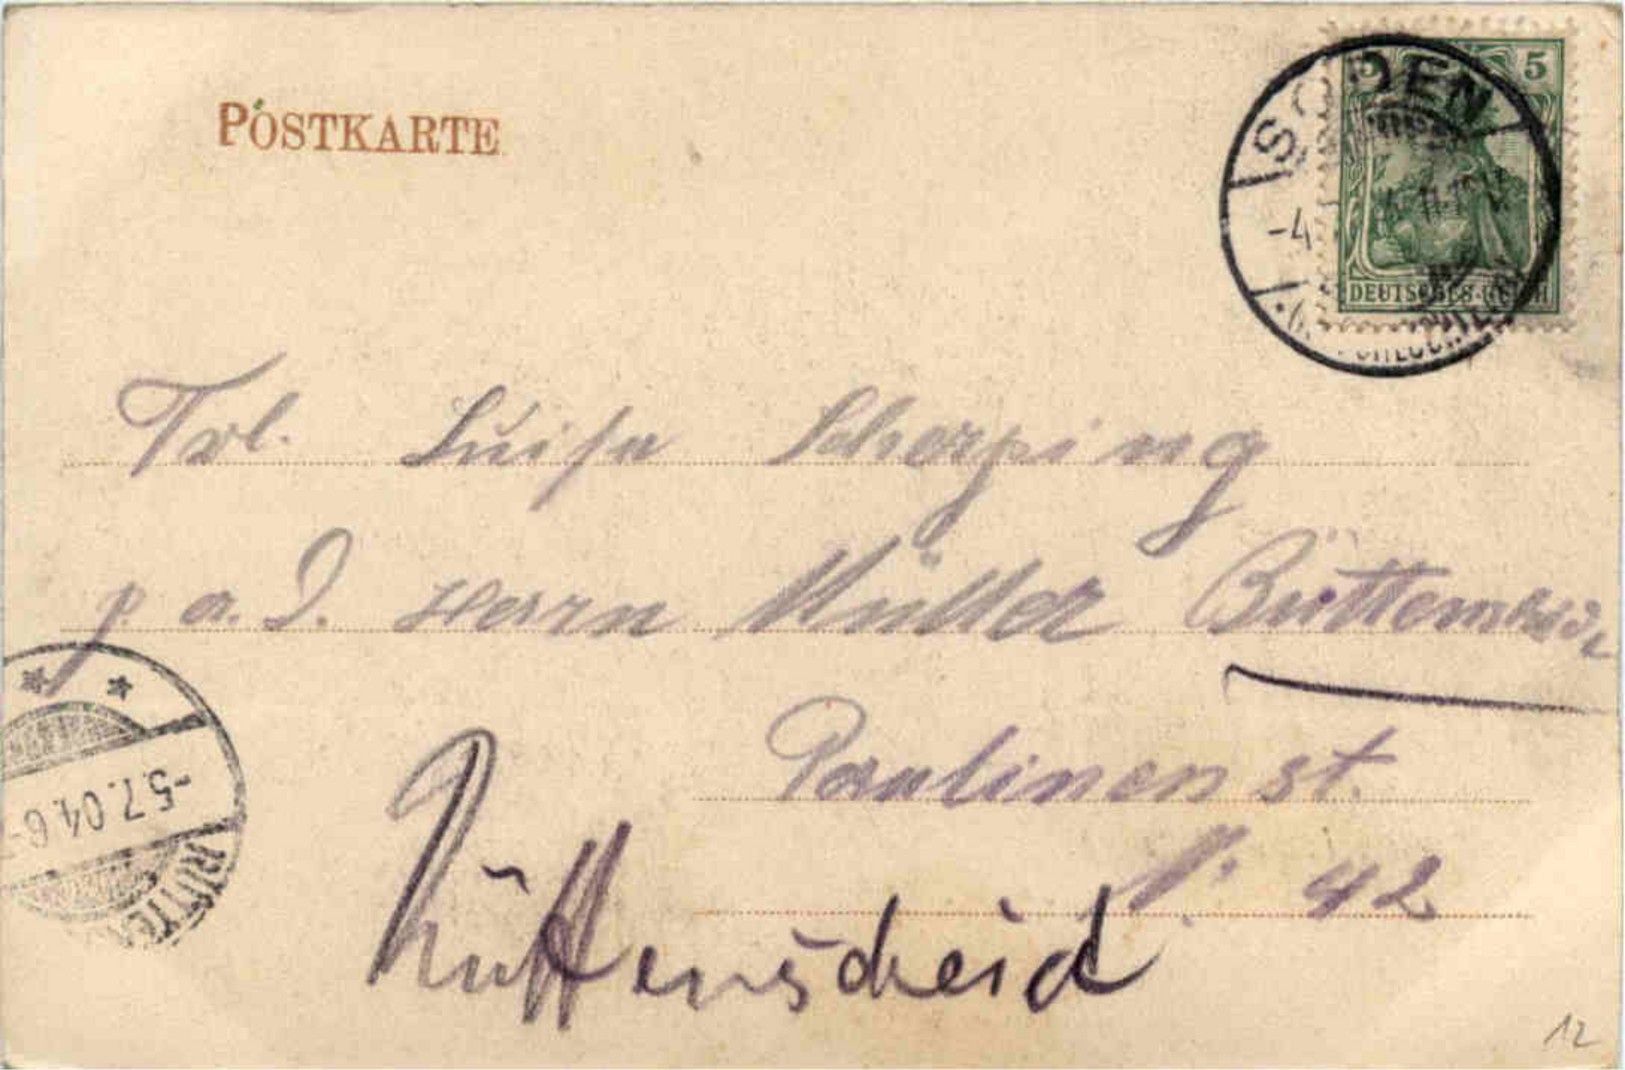 POSTKARTE
SODEN
5
-4
DEUTSCHES REICH
Frl. Luise Scherping
p. a. d. Herrn Müller
Paulinenst.
N. 42
Rüttenscheid
-5.7.04.6-
RÜTTE
12